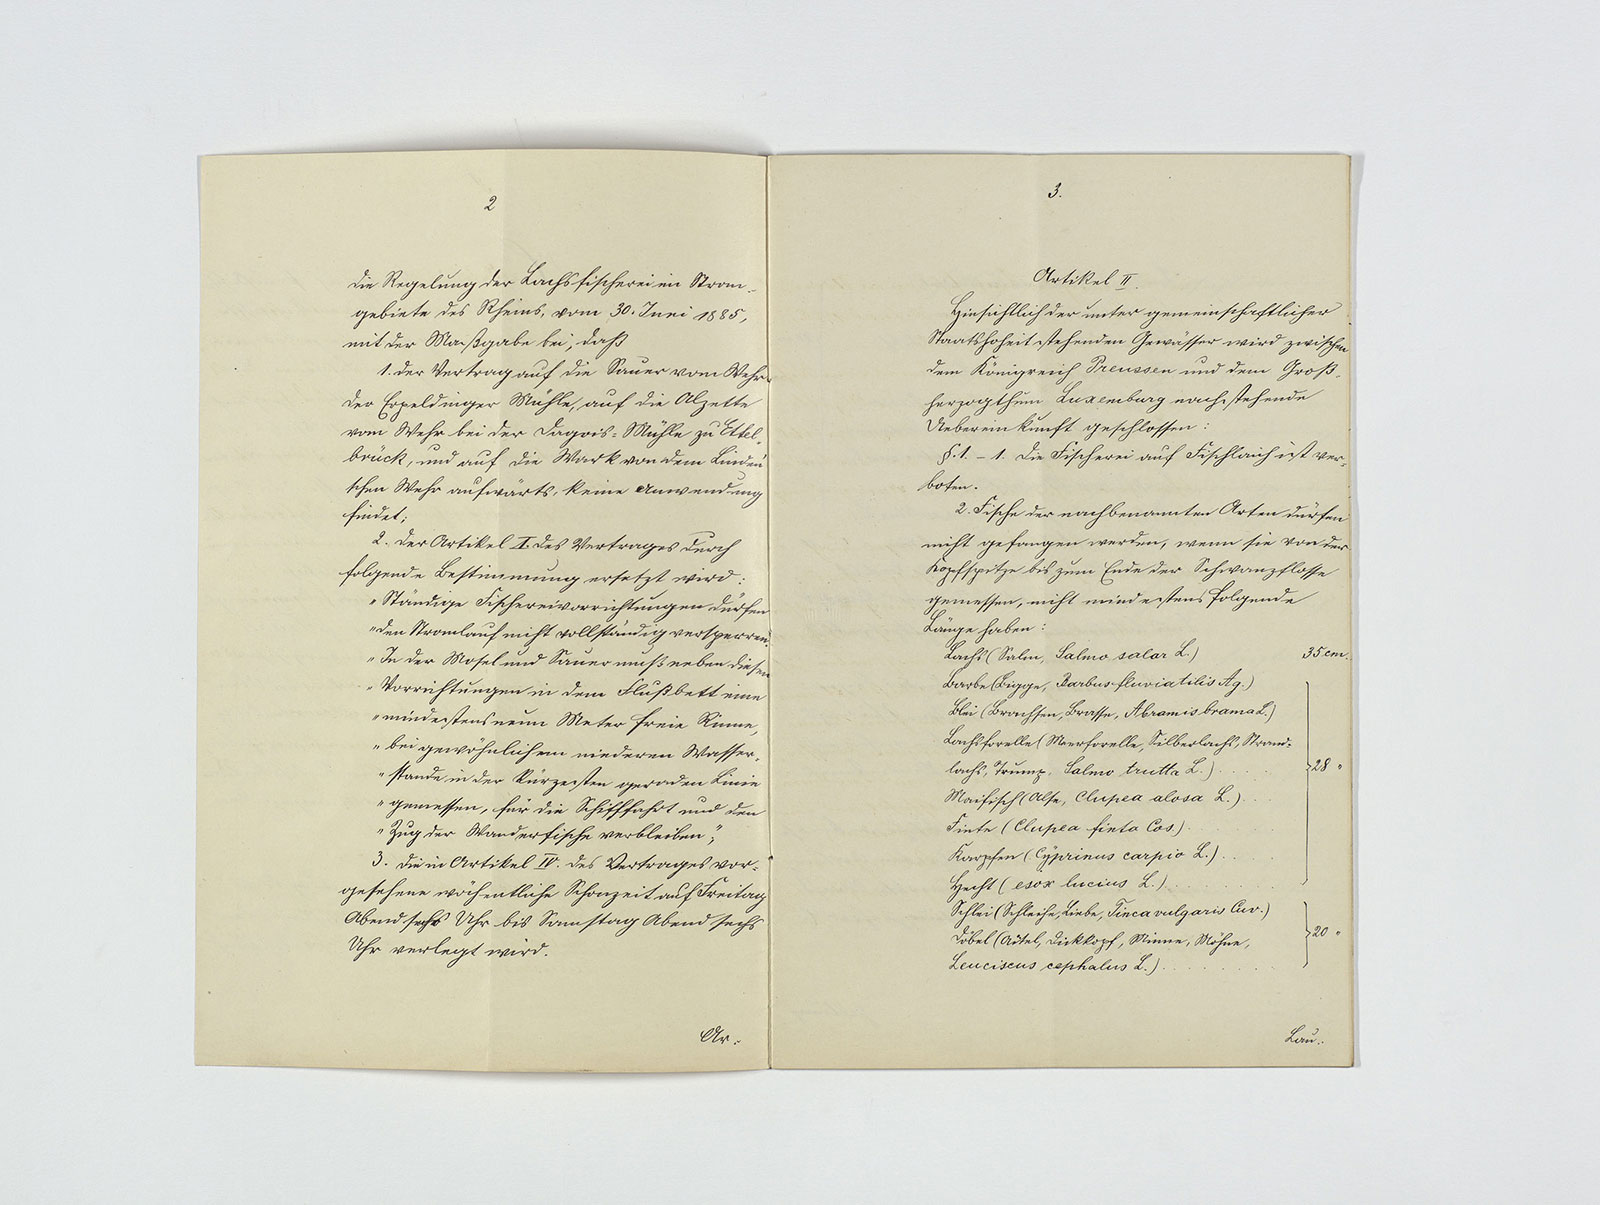 2
die Regelung der Lachsfischerei im Strom-
gebiete des Rheins, vom 30. Juni 1885,
mit der Maßgabe bei, daß
1. der Vertrag auf die Sauer vom Wehr
der Erpeldinger Mühle, auf die Alzette
vom Wehr bei der Dagois-Mühle zu Ettel-
brück, und auf die Wark von dem Linden'
schen Wehr aufwärts, keine Anwendung
findet;
2. der Artikel I. des Vertrages durch
folgende Bestimmung ersetzt wird:
"Ständige Fischereivorrichtungen dürfen
"den Stromlauf nicht vollständig versperren.
"In der Mosel und Sauer muß neben diesen
"Vorrichtungen in dem Flußbett eine
"mindestens neun Meter freie Rinne,
"bei gewöhnlichem niederen Wasser-
"stande in der kürzesten geraden Linie
"gemessen, für die Schifffahrt und den
"Zug der Wanderfische verbleiben";
3. die in Artikel IV. des Vertrages vor-
gesehene wöchentliche Schonzeit auf Freitag
Abend sechs Uhr bis Samstag Abend sechs
Uhr verlegt wird.
Ar-
3.
Artikel II.
Hinsichtlich der unter gemeinschaftlicher
Staatshoheit stehenden Gewässer wird zwischen
dem Königreich Preussen und dem Groß-
herzogthum Luxemburg nachstehende
Uebereinkunft geschlossen:
§. 1. – 1. Die Fischerei auf Fischlaich ist ver-
boten.
2. Fische der nachbenannten Arten dürfen
nicht gefangen werden, wenn sie von der
Kopfspitze bis zum Ende der Schwanzflosse
gemessen, nicht mindestens folgende
Länge haben:
Lachs (Salm, Salmo salar L.) 35 cm.
Barbe (Bigge, Barbus fluviatilis Ag.)
Blei (Brachsen, Brasse, Abramis brama L.)
Lachsforelle (Meerforelle, Silberlachs, Strand-
lachs, Trump, Salmo trutta L.) 28 "
Maifisch (Alse, Clupea alosa L.)
Finte (Clupea finta Cos.)
Karpfen (Cyprinus carpio L.)
Hecht (esox lucius L.)
Schlei (Schleihe, Liebe, Tinca vulgaris Cuv.)
Döbel (Aitel, Dickkopf, Minne, Möhne, 20 "
Leuciscus cephalus L.)
Lau-